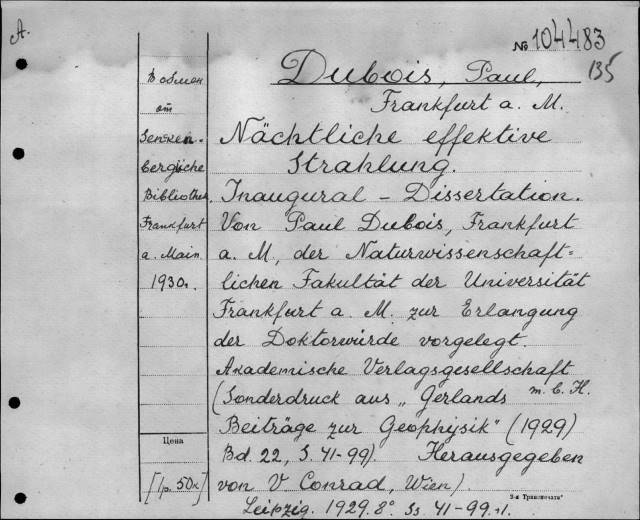 A.
№ 104483
135
Dubois, Paul,
Frankfurt a. M.
Nächtliche effektive
Strahlung.
Inaugural - Dissertation.
Von Paul Dubois, Frankfurt
a. M., der Naturwissenschaft=
lichen Fakultät der Universität
Frankfurt a. M. zur Erlangung
der Doktorwürde vorgelegt.
Akademische Verlagsgesellschaft
m. b. H.
(Sonderdruck aus „Gerlands
Beiträge zur Geophysik" (1929)
Bd. 22, S. 41-99). Herausgegeben
von V. Conrad, Wien).
Leipzig. 1929. 8° Ss. 41-99.+1.
В обмен
от
Senken-
bergische
Bibliothek
Frankfurt
a. Main
1930г.
Цена
[1р. 50к]
3-я Транспечати"